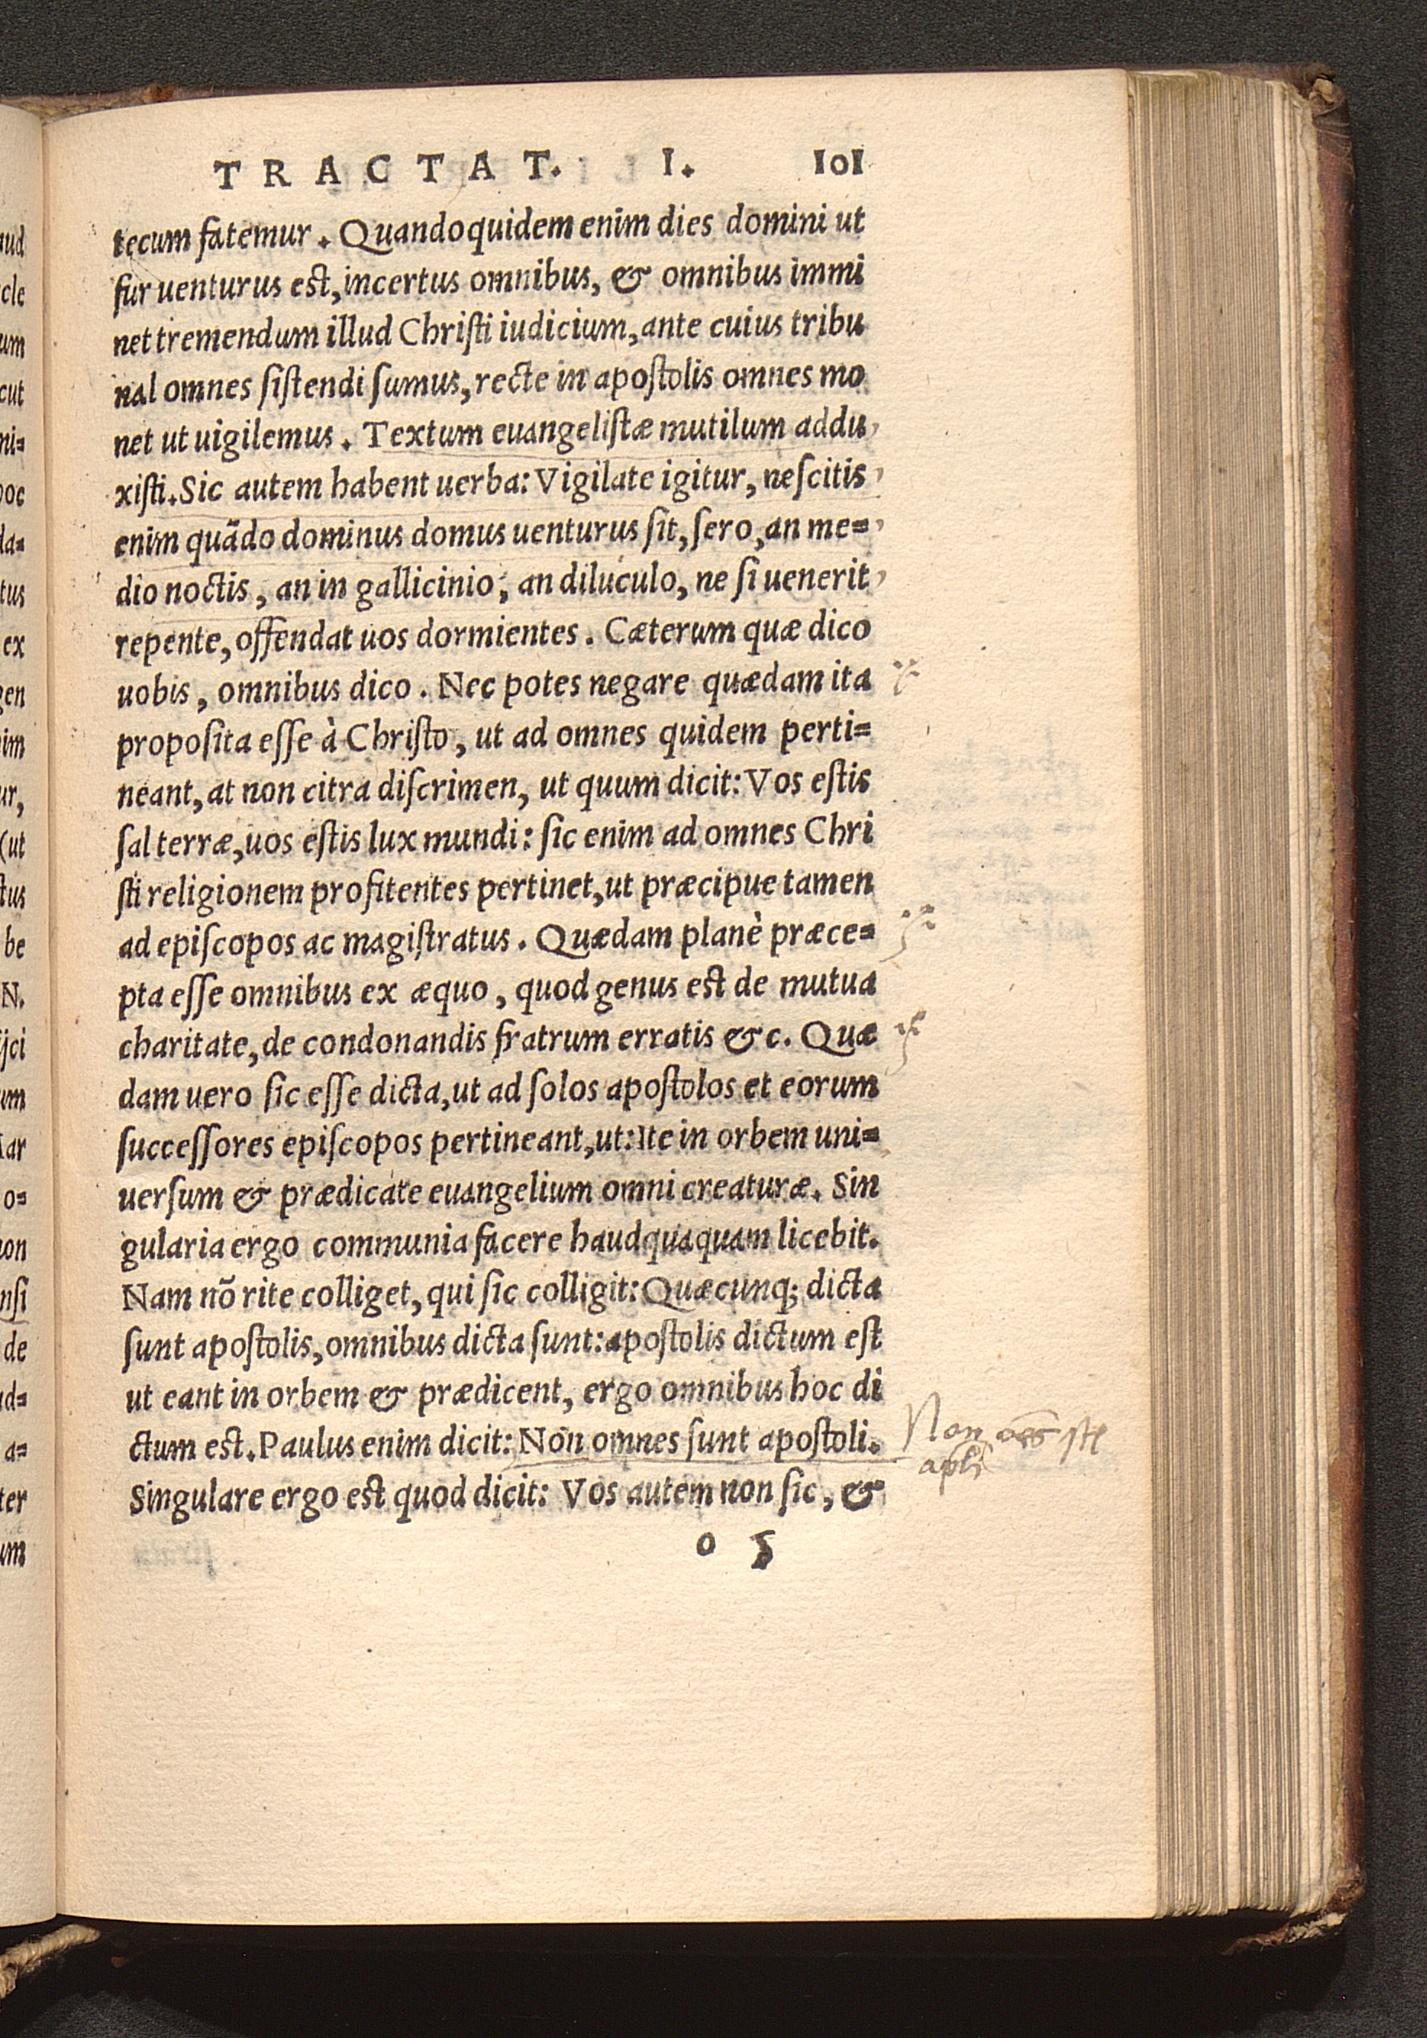 TRACTAT. I. 101
tecum fatemur. Quandoquidem enim dies domini ut
fur uenturus est, incertus omnibus, & omnibus immi
net tremendum illud Chriſti iudicium, ante cuius tribu
nal omnes ſiſtendi ſumus, recte in apoſtolis omnes mo
net ut uigilemus. Textum euangeliſtæ mutilum addu
xiſti. Sic autem habent uerba: Vigilate igitur, neſcitis
enim quãdo dominus domus uenturus ſit, ſero, an me=
dio noctis, an in gallicinio, an diluculo, ne ſi uenerit
repente, offendat uos dormientes. Cæterum quæ dico
uobis, omnibus dico. Nec potes negare quædam ita
propoſita eſſe à Chriſto, ut ad omnes quidem perti=
neant, at non citra diſcrimen, ut quum dicit: Vos eſtis
ſal terræ, uos eſtis lux mundi: ſic enim ad omnes Chri
ſti religionem profitentes pertinet, ut præcipue tamen
ad epiſcopos ac magiſtratus. Quædam planè præce=
pta eſſe omnibus ex æquo, quod genus est de mutua
charitate, de condonandis fratrum erratis &c. Quæ
dam uero ſic eſſe dicta, ut ad ſolos apoſtolos et eorum
succeſſores epiſcopos pertineant, ut: Ite in orbem uni=
uerſum & prædicate euangelium omni creaturæ. Sin
gularia ergo communia facere haudquaquam licebit.
Nam nõ rite colliget, qui ſic colligit: Quæcunq; dicta
ſunt apoſtolis, omnibus dicta ſunt: apoſtolis dictum est
ut eant in orbem & prædicent, ergo omnibus hoc di
ctum est. Paulus enim dicit: Non omnes ſunt apoſtoli.
Singulare ergo est quod dicit: Vos autem non ſic, &
o 5
Non oēs
apl̃i
aud
cle
um
cut
ni=
hoc
da=
tus
ex
gen
nim
ur,
(ut
ſtus
be
N.
ijci
um
Mar
o=
non
nſi
de
ad=
a=
ter
um